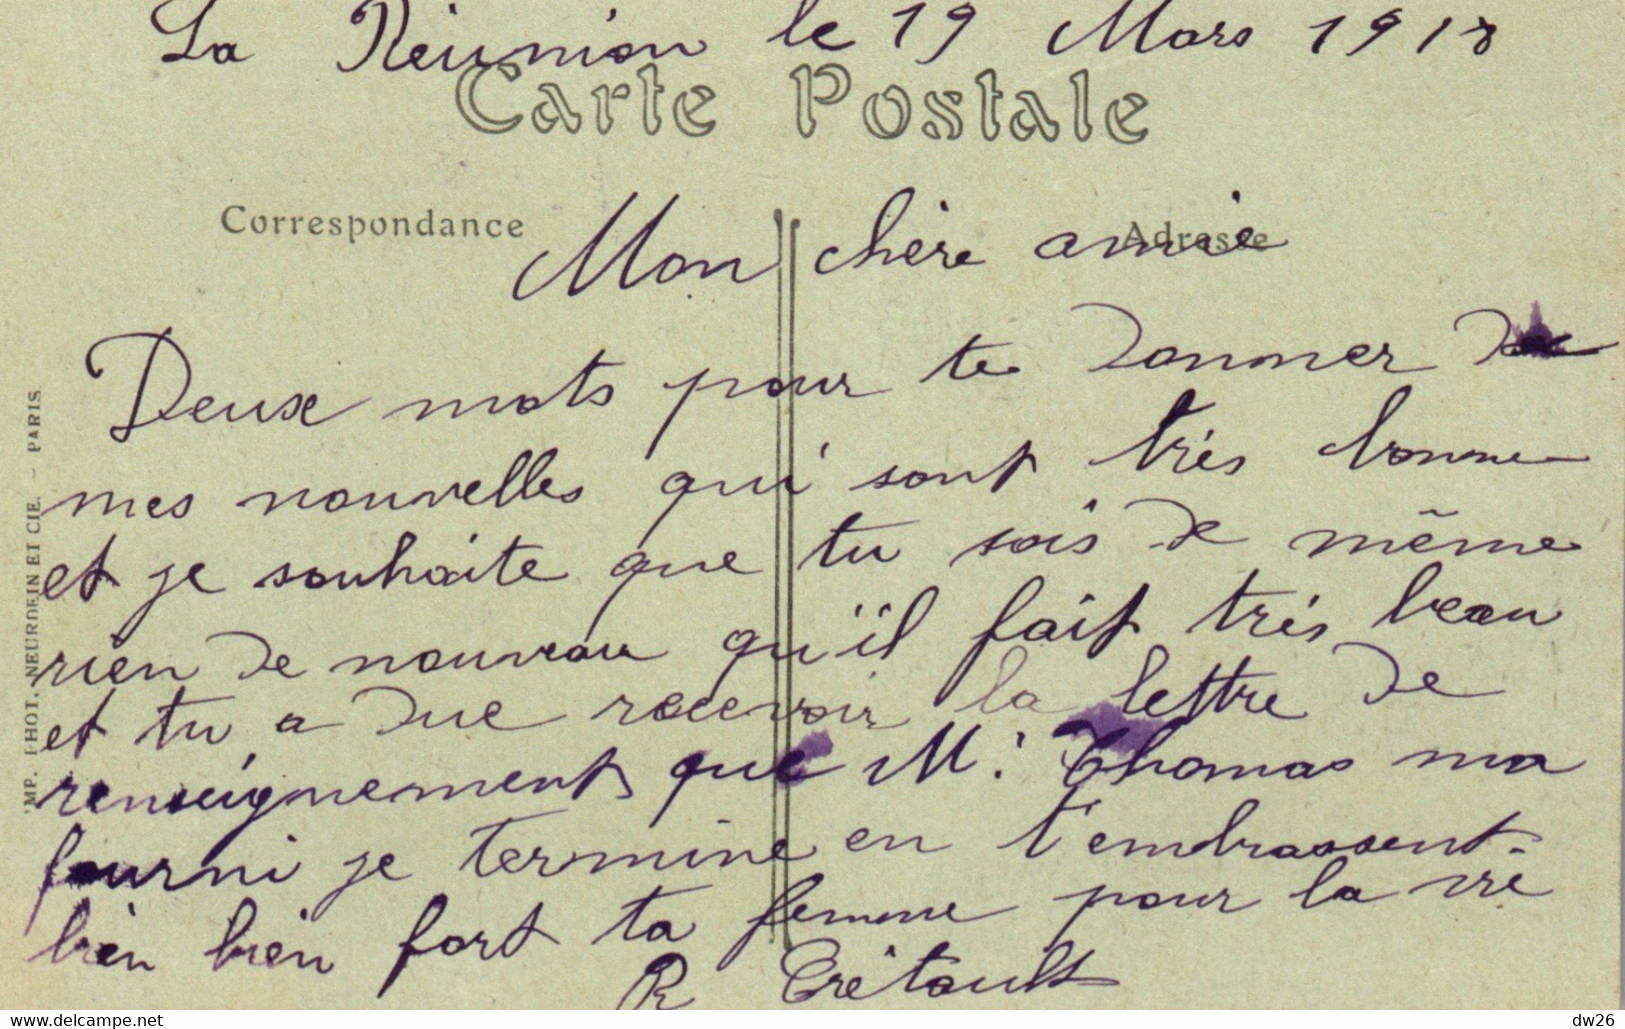 La Réunion le 19 Mars 1918
Carte Postale
Correspondance
Adresse
Mon chère amie
Deux mots pour te donner de
mes nouvelles qui sont très bonne
et je souhaite que tu sois de même
rien de nouveau qu'il fait très beau
et tu a due recevoir la lettre de
renseignement que M. Thomas ma
fourni je termine en t'embrassent.
bien bien fort ta femme pour la vie
R Crétault
IMP. PHOT. NEURDEIN ET CIE. - PARIS
www.delcampe.net
dw26